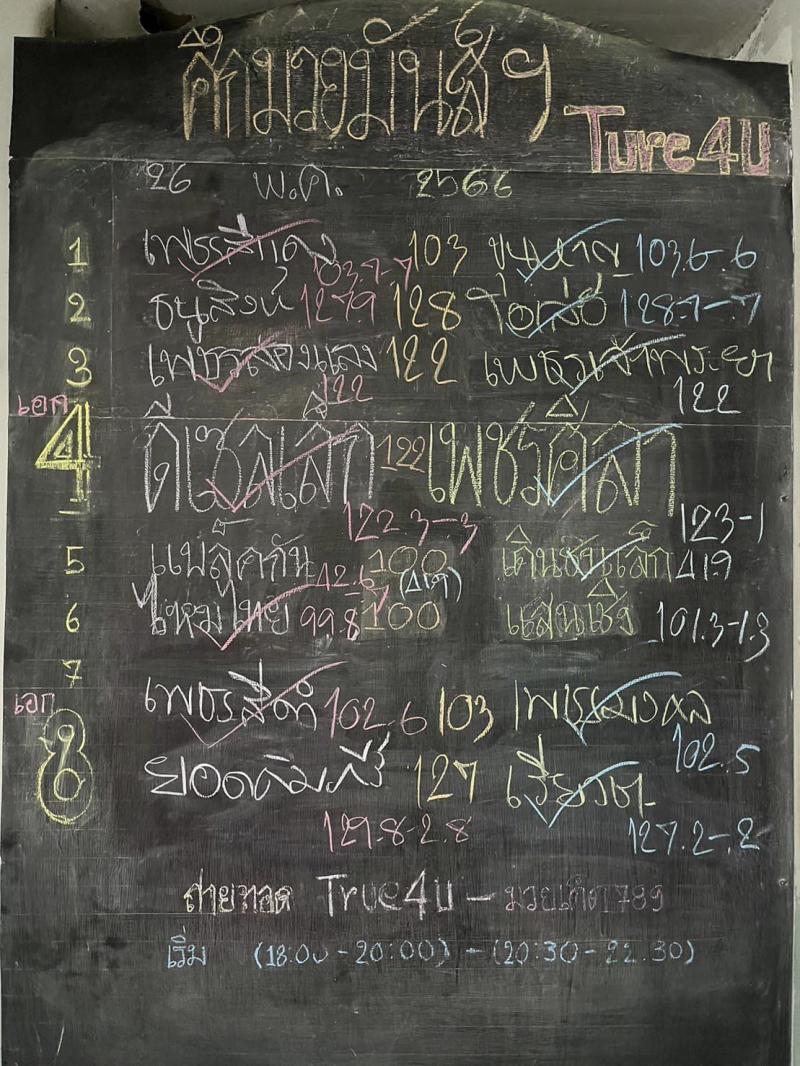 ศึกมวยมันส์ๆ
Ture4U
26 พ.ค. 2566
1 เพชรสีแดง 103 ขุนหาญ 103.6-.6
103.7-.7
2 ธนูสิงห์ 127.9 128 128.7-.7
3 เพชรสองแสง 122 เพชรเจ้าพระยา
122 122
เอก
4 ดีเซลเล็ก 122 เพชรศิลา
122.3-.3 123-1
5 แบล็คกัน 42.6 100 เดินชนเล็ก 41.9
6 ไหมไทย 99.8 100 แสนเชิง 101.3-1.3
7 เพชรสีดำ 102.6 103 เพชรมงคล
102.5
เอก
8 127
129.8-2.8 127.2-.2
ถ่ายทอด True4U - มวยเด็ด789
เริ่ม (18:00-20:00) - (20:30-22.30)